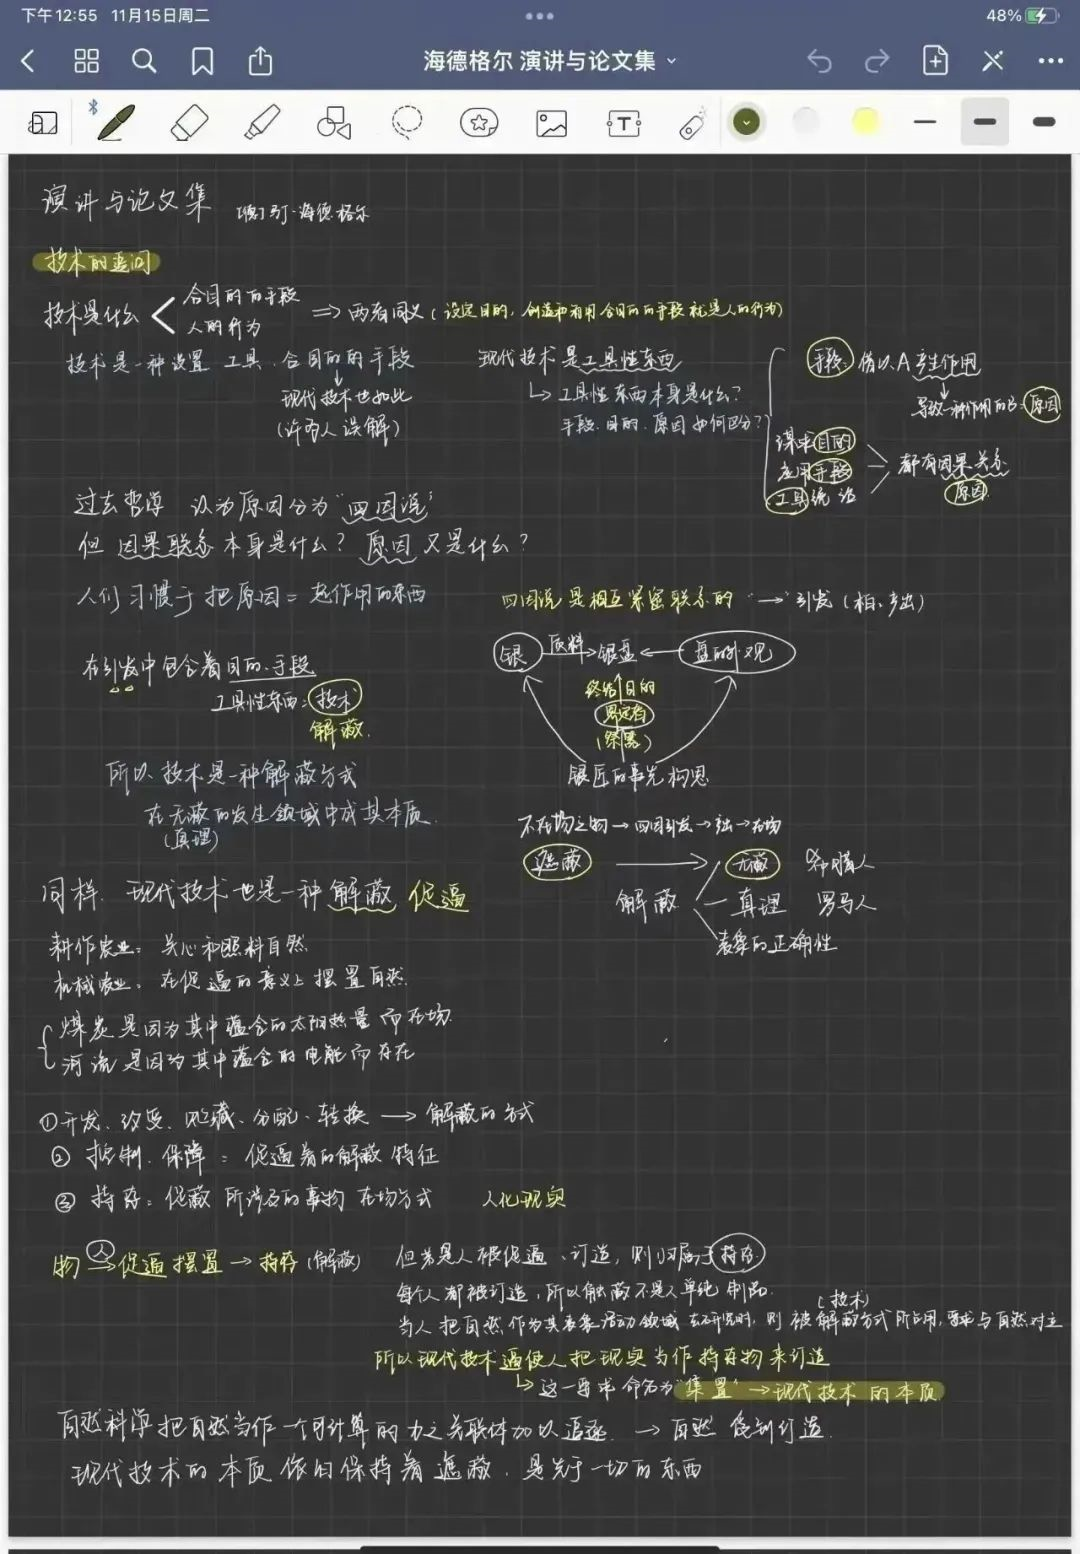 下午12:55 11月15日周二
48%
海德格尔 演讲与论文集
演讲与论文集 [德]马丁·海德格尔
技术的追问
技术是什么
合目的的手段
人的行为
⇒ 两者同义(设定目的,创造和利用合目的的手段就是人的行为)
技术是一种设置 工具、合目的的手段
现代技术也如此
(许多人误解)
现代技术是工具性东西
工具性东西本身是什么?
手段、目的、原因如何区分?
手段:借以A产生作用
导致一种作用的的:原因
谋求目的
应用手段
工具统治
都有因果关系
原因
过去哲学 认为原因分为"四因说"
但 因果联系本身是什么?原因又是什么?
人们习惯于把原因=起作用的东西
四因说是相互紧密联系的 "→"引发(相、产出)
银 质料→银盘←盘的外观
终结目的
界定者
(祭器)
银匠的事先构思
在引发中包含着目的、手段
工具性东西:技术
解蔽
所以技术是一种解蔽方式
在无蔽的发生领域中成其本质
(真理)
不在场之物→四因引发→产出→在场
遮蔽 → 无蔽 希腊人
解蔽 真理 罗马人
表象的正确性
同样、现代技术也是一种解蔽 促逼
耕作农业:关心和照料自然
机械农业:在促逼的意义上摆置自然
煤炭是因为其中蕴含的太阳热量而在场
河流是因为其中蕴含的电能而存在
①开发、改变、贮藏、分配、转换 → 解蔽的方式
② 控制、保障:促逼着的解蔽特征
③ 持存:促蔽所涉及的事物在场方式 人化现实
物 人→促逼摆置→持存(解蔽)
但若是人被促逼、订造,则归属于持存
每个人都被订造,所以解蔽不是人单纯制品
(技术)
当人把自然作为其表象活动领域去研究时,则被解蔽方式所占用,要求与自然对立
所以现代技术逼使人把现实当作持存物来订造
这一要求命名为"集置"→现代技术的本质
自然科学把自然当作一个可计算的力之关联体加以追逐 → 自然受到订造
现代技术的本质依旧保持着遮蔽,是先于一切的东西